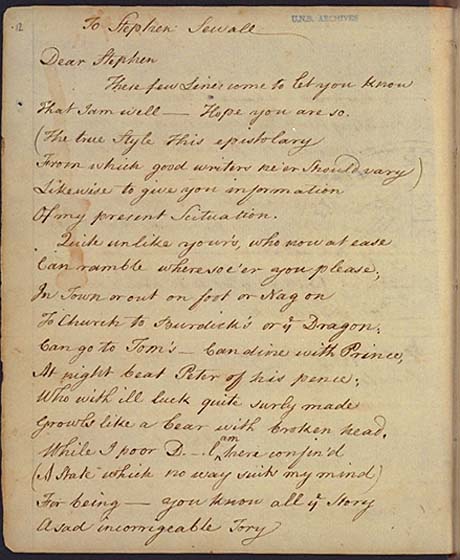 12
To Stephen Sewall
U.N.B. ARCHIVES
Dear Stephen
These few Lines come to let you know
That I am well — Hope you are so.
(The true Style this epistolary
From which good writers ne'er should vary)
Likewise to give you information
Of my present Scituation.
Quite unlike your's, who now at ease
Can ramble wheresoe'er you please,
In Town or out on foot or Nag on
To Church to Burdick's or ye Dragon,
Can go to Tom's — Can dine with Prince,
At night beat Peter of his pence;
Who with ill luck quite surly made
Growls like a Bear with broken head.
While I poor D—l am here confin'd
(A State which no way suits my mind)
For being — you know all ye Story
A sad incorrigeable Tory